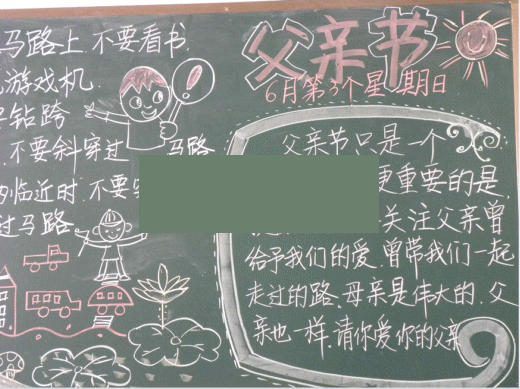 马路上，不要看书
游戏机
钻跨
不要斜穿过 马路
临近时，不要
过马路
父亲节
6月第3个星期日
父亲节只是一个
更重要的是，
关注父亲曾
给予我们的爱，曾带我们一起
走过的路，母亲是伟大的，父
亲也一样，请你爱你的父亲